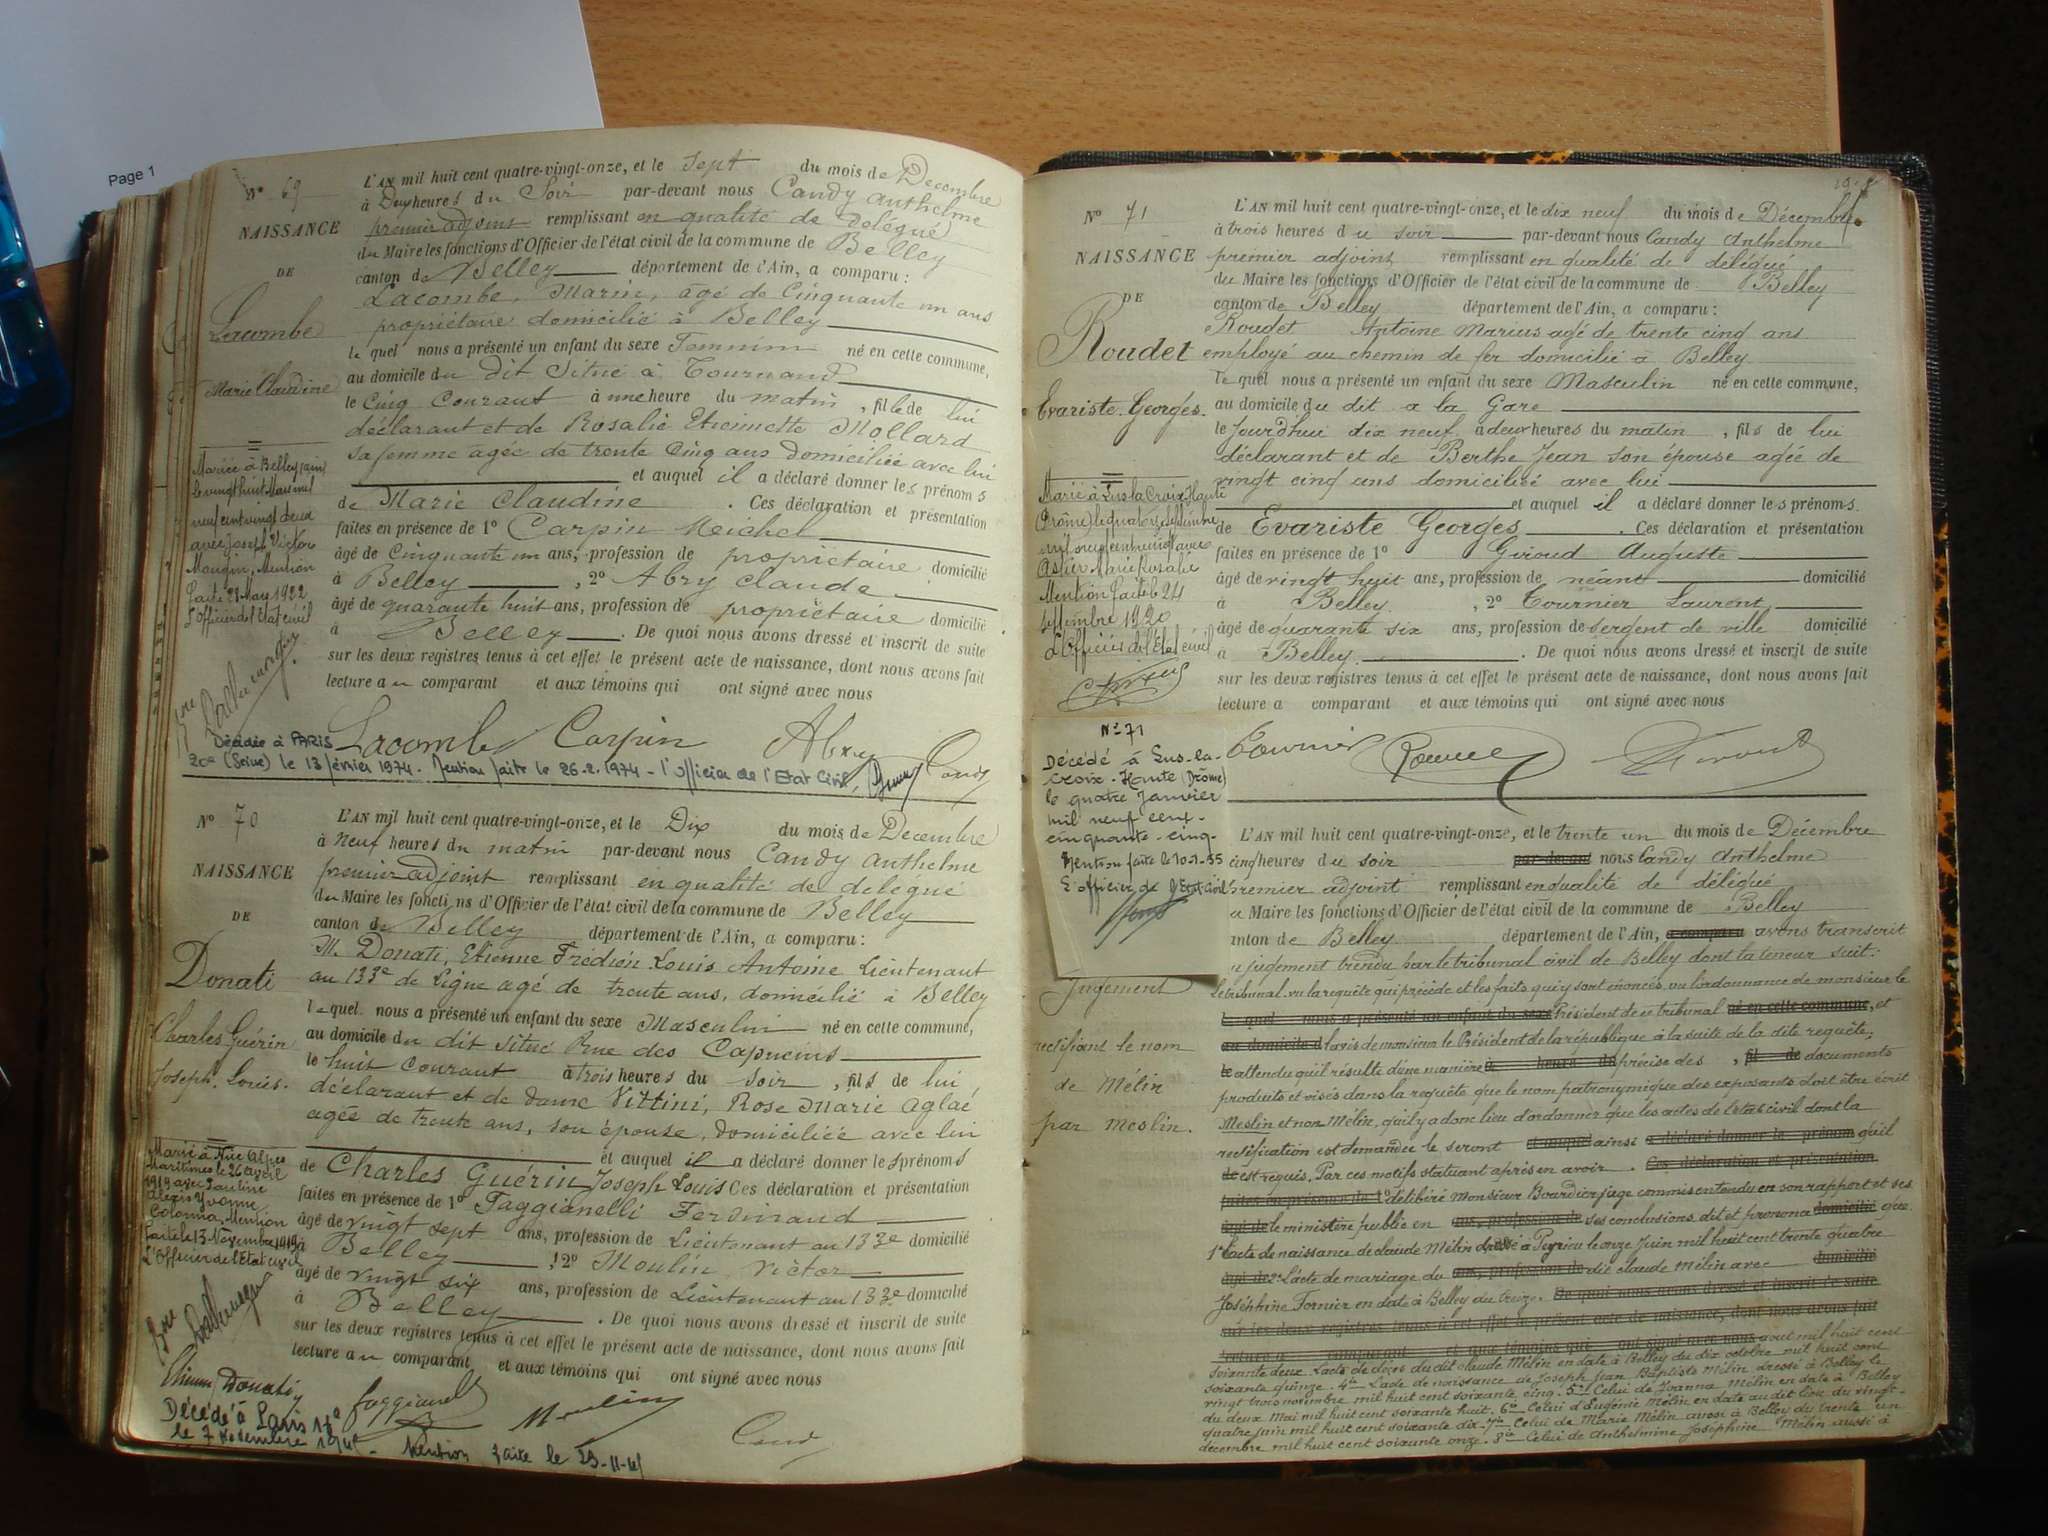 Page 1
N° 69
NAISSANCE
DE
Lacombe
Marie Claudine
L'AN mil huit cent quatre-vingt-onze, et le sept du mois de Decembre
à Deux heures du Soir par-devant nous Candy Anthelme
premier adjoint remplissant en qualité de délégué
du Maire les fonctions d'Officier de l'état civil de la commune de Belley
canton de Belley département de l'Ain, a comparu :
Lacombe, Marin, agé de Cinquante un ans
propriétaire domicilié à Belley
le quel nous a présenté un enfant du sexe Feminin né en cette commune,
au domicile du dit Situé à
le Cinq Courant à une heure du matin, fille de lui
déclarant et de Rosalie Etiennette Mollard
sa femme agée de trente Cinq ans domiciliée avec lui
et auquel il a déclaré donner les prénoms
de Marie Claudine. Ces déclaration et présentation
faites en présence de 1° Carpin Michel
âgé de Cinquante un ans, profession de propriétaire domicilié
à Belley, 2° Abry Claude
âgé de quarante huit ans, profession de propriétaire domicilié
à Belley. De quoi nous avons dressé et inscrit de suite
sur les deux registres tenus à cet effet le présent acte de naissance, dont nous avons fait
lecture au comparant et aux témoins qui ont signé avec nous
Mariée à Belley (ain)
le vingt huit Mars mil
neuf cent vingt deux
avec Joseph Victor
Maugin, Mention
faite 28 Mars 1922
L'Officier de l'Etat civil
Lacombe Carpin Abry Candy
Décédée à PARIS
20e (Seine) le 13 février 1974. Mention faite le 26.2.1974 - l'Officier de l'Etat Civil,
N° 70
NAISSANCE
DE
Donati
Charles Guérin
Joseph Louis.
L'AN mil huit cent quatre-vingt-onze, et le Dix du mois de Décembre
à Neuf heures du matin par-devant nous Candy Anthelme
premier adjoint remplissant en qualité de délégué
du Maire les fonctions d'Officier de l'état civil de la commune de Belley
canton de Belley département de l'Ain, a comparu :
M. Donati, Etienne Louis Antoine Lieutenant
au 133e de Ligne agé de trente ans, domicilié à Belley
lequel nous a présenté un enfant du sexe Masculin né en cette commune,
au domicile du dit situé Rue des Capucins
le huit Courant à trois heures du Soir, fils de lui
déclarant et de dame Vittini, Rose Marie Aglaé
agée de trente ans, son épouse, domiciliée avec lui
et auquel il a déclaré donner les prénoms
de Charles Guérin Joseph Louis Ces déclaration et présentation
faites en présence de 1° Faggianelli Ferdinand
âgé de vingt sept ans, profession de Lieutenant au 133e domicilié
à Belley, 2° Moulin Victor
âgé de vingt six ans, profession de Lieutenant au 133e domicilié
à Belley. De quoi nous avons dressé et inscrit de suite
sur les deux registres tenus à cet effet le présent acte de naissance, dont nous avons fait
lecture au comparant et aux témoins qui ont signé avec nous
Marié à Nice Alpes
Maritimes le 26 avril
1919 avec Pauline
Alexis Yvonne
Colonna, Mention
faite le 13 Novembre 1919
L'Officier de l'Etat civil
Etienne Donati Faggianelli Moulin Cand
Décédé à Paris
le 7
Mention faite le
N° 71
NAISSANCE
DE
Roudet
Evariste Georges.
L'AN mil huit cent quatre-vingt-onze, et le dix neuf du mois de Décembre
à trois heures du soir par-devant nous Candy Anthelme
premier adjoint remplissant en qualité de délégué
du Maire les fonctions d'Officier de l'état civil de la commune de Belley
canton de Belley département de l'Ain, a comparu :
Roudet Antoine Marius agé de trente cinq ans
employé au chemin de fer domicilié à Belley
le quel nous a présenté un enfant du sexe Masculin né en cette commune,
au domicile du dit a la Gare
le Jourdhui dix neuf à deux heures du matin, fils de lui
déclarant et de Berthe Jean son épouse agée de
vingt cinq ans domiciliée avec lui
et auquel il a déclaré donner les prénoms
de Evariste Georges. Ces déclaration et présentation
faites en présence de 1° Giroud Auguste
âgé de vingt huit ans, profession de néant domicilié
à Belley, 2° Tournier Laurent,
âgé de quarante six ans, profession de sergent de ville domicilié
à Belley. De quoi nous avons dressé et inscrit de suite
sur les deux registres tenus à cet effet le présent acte de naissance, dont nous avons fait
lecture a comparant et aux témoins qui ont signé avec nous
Marié à Lus la Croix Haute
(Drôme) le quatorze Septembre
mil neuf cent vingt avec
Astier Marie Rosalie
Mention faite le 24
septembre 1920
L'Officier de l'Etat civil
Tournier Giroud
N° 71
Décédé à Lus-la-
Croix-Haute (Drôme)
le quatre Janvier
mil neuf cent
cinquante-cinq-
Mention faite le 10-1-55
L'officier de l'Etat Civil
L'AN mil huit cent quatre-vingt-onze, et le trente un du mois de Décembre
cinq heures du soir par-devant nous Candy Anthelme
Premier adjoint remplissant en qualité de délégué
Maire les fonctions d'Officier de l'état civil de la commune de Belley
canton de Belley département de l'Ain, a comparu avons transcrit
jugement rendu par le tribunal civil de Belley dont la teneur suit :
Jugement
rectifiant le nom
de Mélin
par Meslin.
Le tribunal vu la requête qui précède et les faits qui y sont énoncés, vu l'ordonnance de monsieur le
Président de ce tribunal né en cette commune, et
au domicile d l'avis de monsieur le Président de la république à la suite de la dite requête,
attendu qu'il résulte d'une manière précise des documents
produits et visés dans la requête que le nom patronymique des exposants doit être écrit
Meslin et non Mélin, qu'il y a donc lieu d'ordonner que les actes de l'état civil dont la
rectification est demandée le seront ainsi qu'il
est requis. Par ces motifs statuant après en avoir
délibéré monsieur Bourdier juge commis entendu en son rapport et ses
le ministère public en ses conclusions, dit et prononce que
1° l'acte de naissance de claude Mélin dressé à Peyrieu le onze Juin mil huit cent trente quatre
2° L'acte de mariage du dit claude Mélin avec
Joséphine Fornier en date à Belley du treize
août mil huit cent
soixante deux. L'acte de décès du dit claude Mélin en date à Belley du dix octobre mil huit cent
soixante quinze. 4° L'acte de naissance de Joseph Jean Baptiste Mélin dressé à Belley le
vingt trois novembre mil huit cent soixante cinq. 5° Celui de Joanna Mélin en date à Belley
du deux Mai mil huit cent soixante huit. 6° Celui d'Eugénie Mélin en date au dit lieu du vingt-
quatre juin mil huit cent soixante dix. 7° Celui de Marie Mélin aussi à Belley du trente un
décembre mil huit cent soixante onze. 8° Celui de Anthelmine Joséphine Mélin aussi à